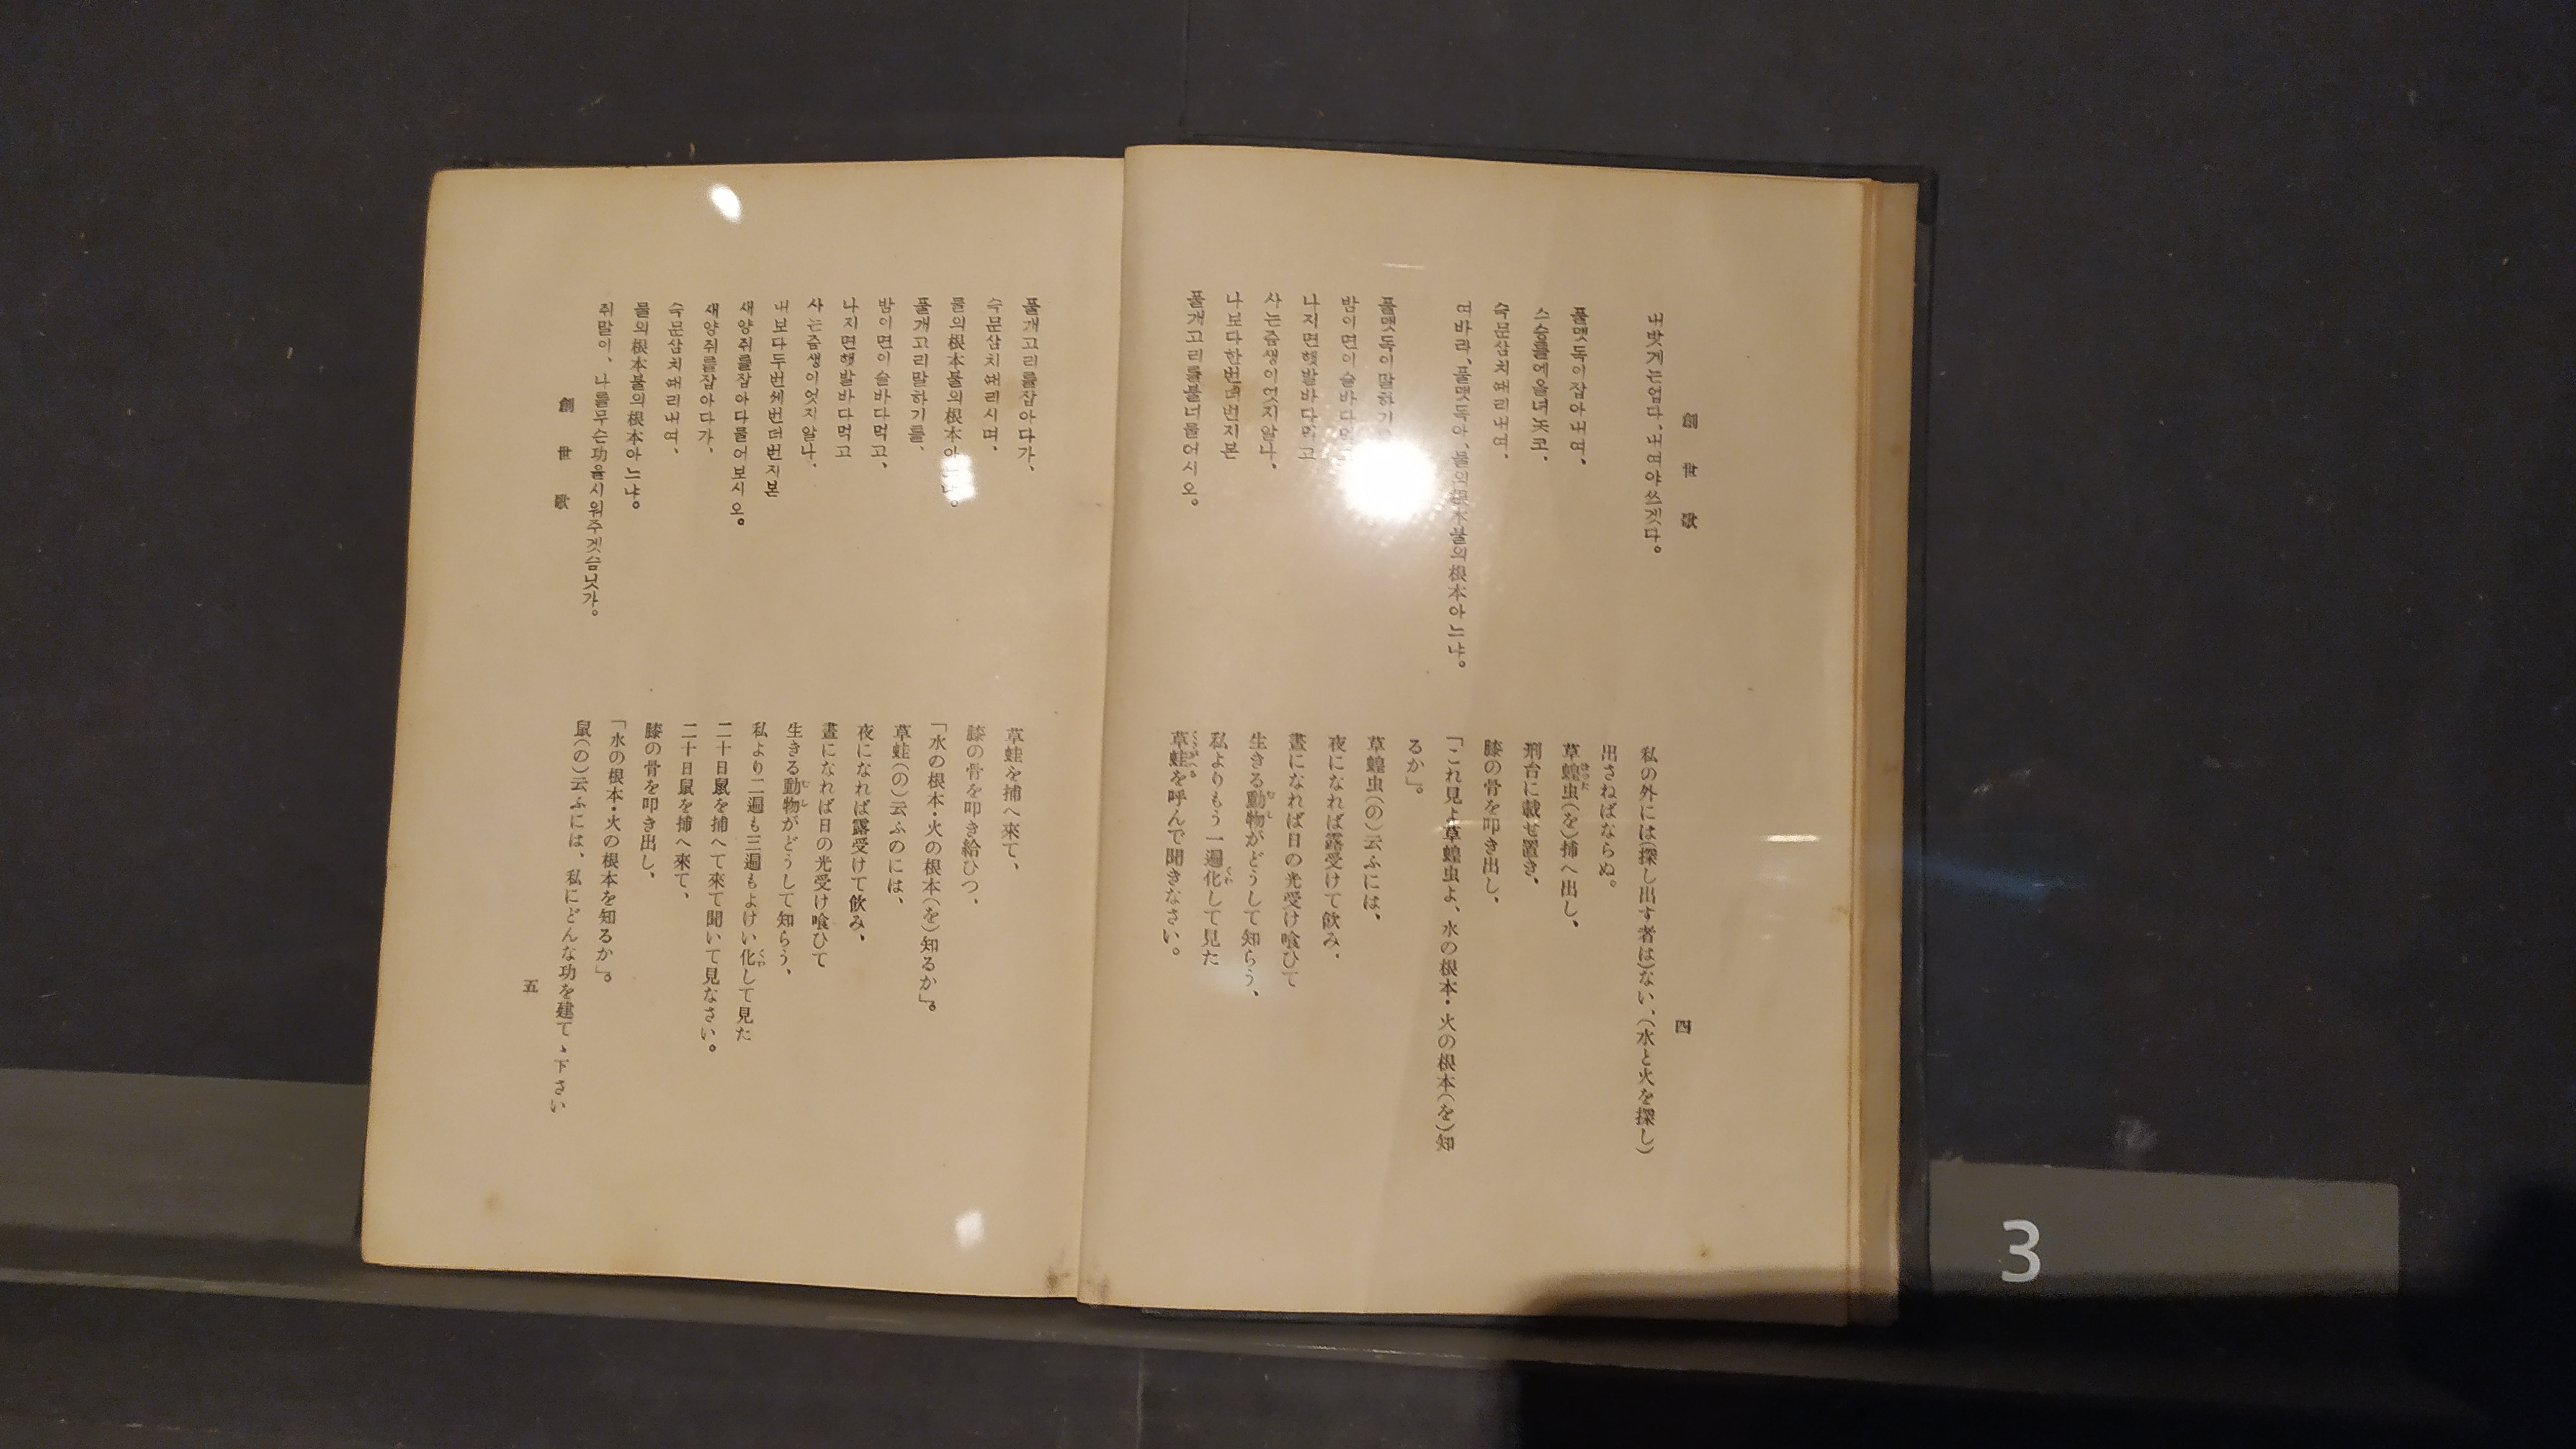 創世歌
四
내밧게는업다、내여야쓰겟다。
풀맷독이잡아내여、
스승틀에올녀놋코、
슥문삼치때리내여、
여바라、풀맷독아、물의根本불의根本아느냐。
풀맷독이말하기
밤이면이슬바다
나지면햇발바다먹고
사는즘생이엇지알나、
나보다한번더번지본
풀개고리를불너물어시오。
私の外には(探し出す者は)ない、(水と火を探し)
出さねばならぬ。
草蝗虫(を)捕へ出し、
ばった
刑台に載せ置き、
膝の骨を叩き出し、
「これ見よ草蝗虫よ、水の根本・火の根本(を)知
るか」。
草蝗虫(の)云ふには、
夜になれば露受けて飮み、
晝になれば日の光受け喰ひて
生きる動物がどうして知らう、
むし
私よりもう一遍化して見た
くわ
草蛙を呼んで聞きなさい。
くさがへる
풀개고리를잡아다가、
슥문삼치때리시며、
물의根本불의根本아느냐。
풀개고리말하기를、
밤이면이슬바다먹고、
나지면햇발바다먹고
사는즘생이엇지알나、
내보다두번세번더번지본
새양쥐를잡아다물어보시오。
새양쥐를잡아다가、
슥문삼치때리내여、
물의根本불의根本아느냐。
쥐말이、나를무슨功을시워주겟슴닛가。
創世歌
草蛙を捕へ來て、
膝の骨を叩き給ひつ、
「水の根本・火の根本(を)知るか」。
草蛙(の)云ふのには、
夜になれば露受けて飮み、
晝になれば日の光受け喰ひて
生きる動物がどうして知らう、
むし
私より二遍も三遍もよけい化して見た
くわ
二十日鼠を捕へて來て聞いて見なさい。
二十日鼠を捕へ來て、
膝の骨を叩き出し、
「水の根本・火の根本を知るか」。
鼠(の)云ふには、私にどんな功を建てゝ下さい
五
3